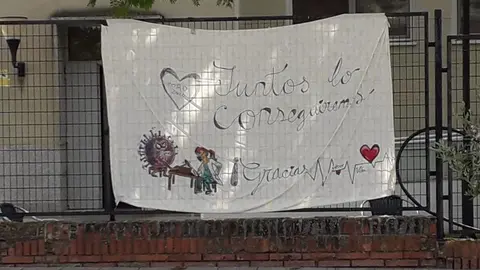 Juntos lo
conseguiremos
¡Gracias